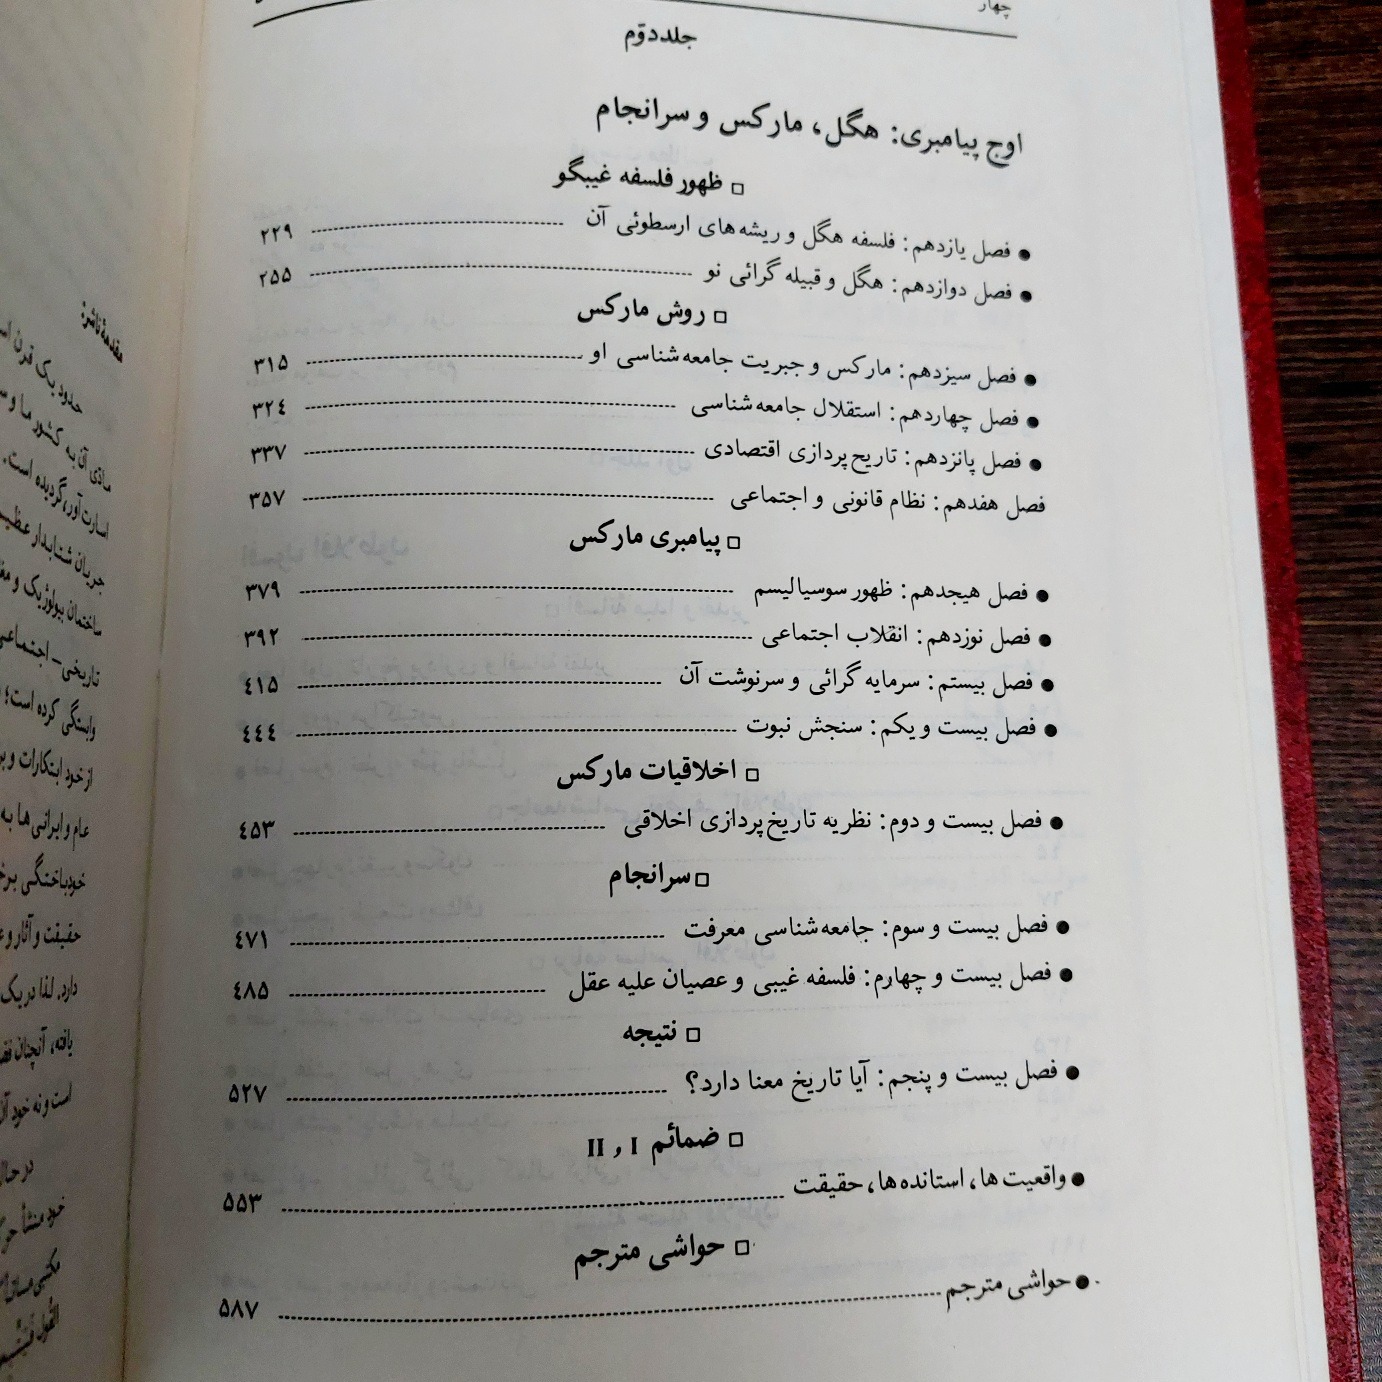 چهار
جلد دوّم
اوج پیامبری: هگل، مارکس و سرانجام
□ ظهور فلسفه غیبگو
● فصل یازدهم: فلسفه هگل و ریشه‌های ارسطوئی آن ---------- ۲۲۹
● فصل دوازدهم: هگل و قبیله گرائی نو ---------- ۲۵۵
□ روش مارکس
● فصل سیزدهم: مارکس و جبریت جامعه‌شناسی او ---------- ۳۱۵
● فصل چهاردهم: استقلال جامعه‌شناسی ---------- ۳۲٤
● فصل پانزدهم: تاریخ‌پردازی اقتصادی ---------- ۳۳۷
فصل هفدهم: نظام قانونی و اجتماعی ---------- ۳۵۷
□ پیامبری مارکس
● فصل هیجدهم: ظهور سوسیالیسم ---------- ۳۷۹
● فصل نوزدهم: انقلاب اجتماعی ---------- ۳۹۲
● فصل بیستم: سرمایه گرائی و سرنوشت آن ---------- ٤۱۵
● فصل بیست و یکم: سنجش نبوت ---------- ٤٤٤
□ اخلاقیات مارکس
● فصل بیست و دوم: نظریه تاریخ‌پردازی اخلاقی ---------- ٤۵۳
□ سرانجام
● فصل بیست و سوم: جامعه‌شناسی معرفت ---------- ٤۷۱
● فصل بیست و چهارم: فلسفه غیبی و عصیان علیه عقل ---------- ٤۸۵
□ نتیجه
● فصل بیست و پنجم: آیا تاریخ معنا دارد؟ ---------- ۵۲۷
□ ضمائم I و II
● واقعیت‌ها، استانده‌ها، حقیقت ---------- ۵۵۳
□ حواشی مترجم
● حواشی مترجم ---------- ۵۸۷
مقدمهٔ ناشر:
حدود یک قرن
مادّی آن به کشور ما و
اسارت‌آور گردیده است.
جریان شتابدار
ساختمان بیولوژیک و
تاریخی – اجتماعی
وابستگی کرده است؛
از خود ابتکارات و
عام و ایرانی‌ها به
خودباختگی
حقیقت و آثار و
دارد. لذا در یک
یافته، آنچنان
است و نه خود آن
در حال
خود منشأ